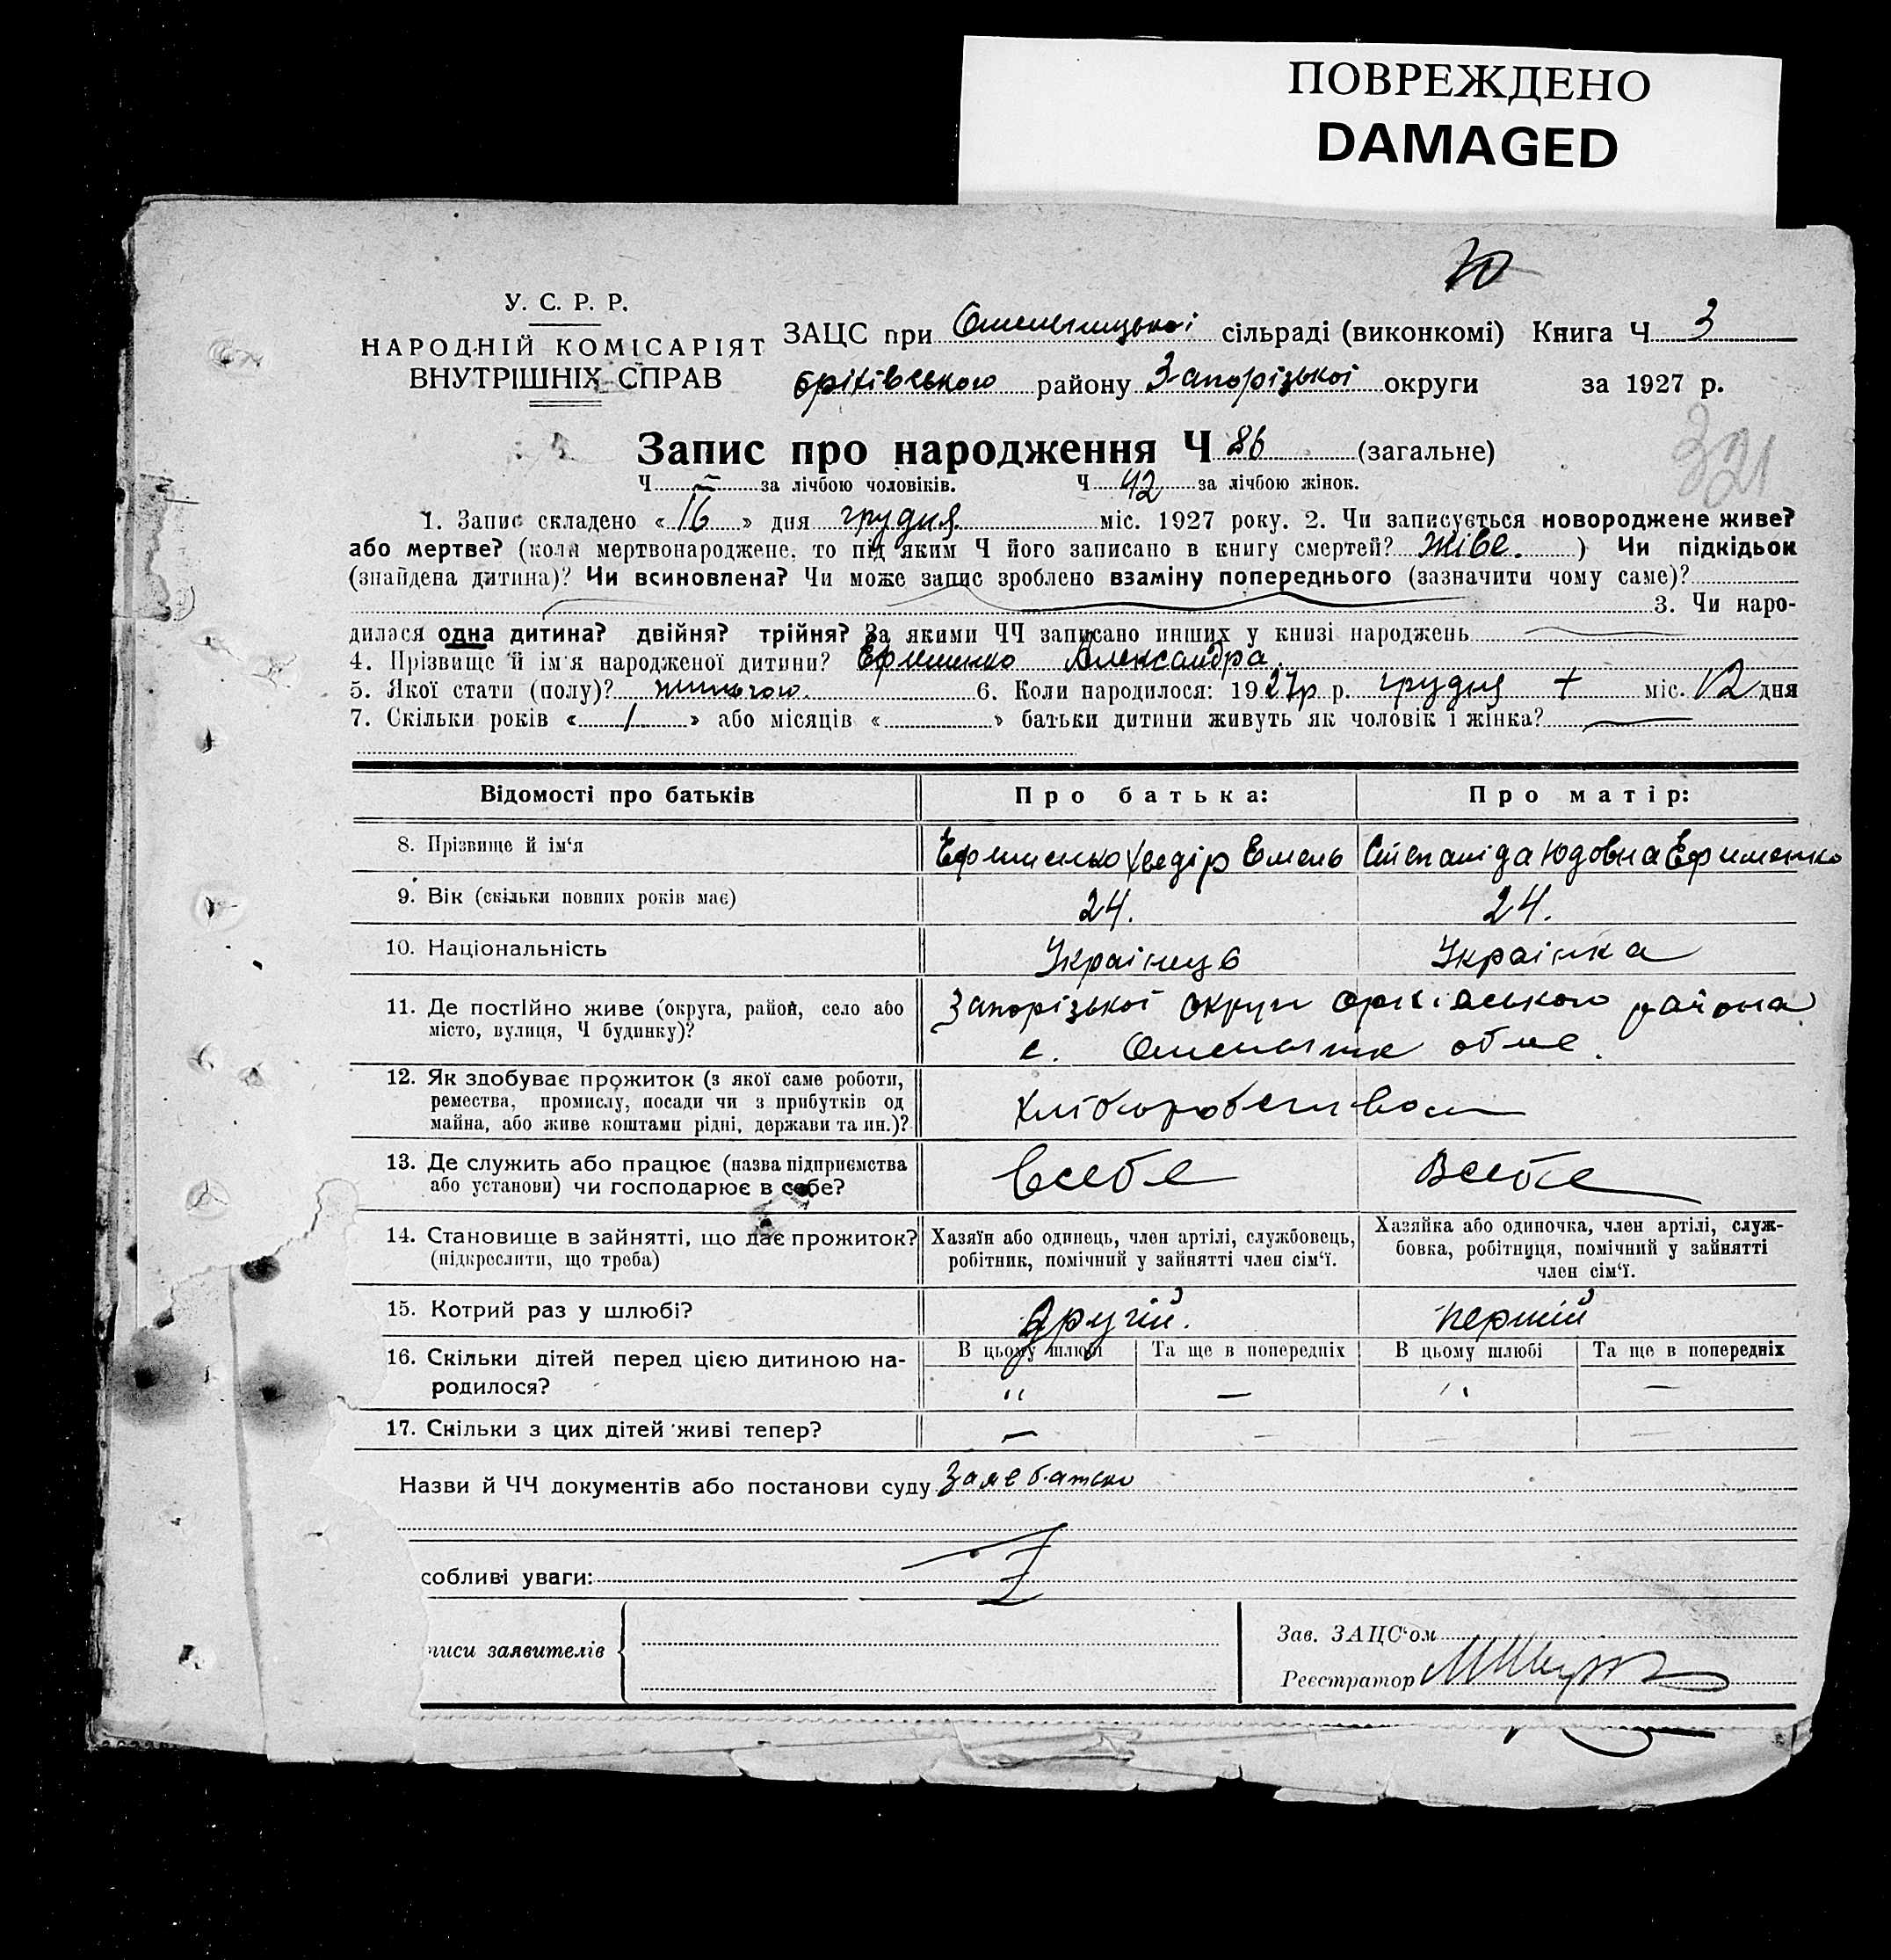 ПОВРЕЖДЕНО
DAMAGED
У. С. Р. Р.
НАРОДНІЙ КОМІСАРІЯТ
ВНУТРІШНІХ СПРАВ
ЗАЦС при Омельницької сільраді (виконкомі) Книга Ч 3
району Запорізької округи за 1927 р.
321
Запис про народження Ч 86 (загальне)
Ч — за лічбою чоловіків. Ч 42 за лічбою жінок.
1. Запис складено « 16 » дня грудня міс. 1927 року. 2. Чи записується новороджене живе?
або мертве? (коли мертвонароджене, то під яким Ч його записано в книгу смертей? живе. ) Чи підкідьок
(знайдена дитина)? Чи всиновлена? Чи може запис зроблено взаміну попереднього (зазначити чому саме)?
3. Чи наро-
дилася одна дитина? двійня? трійня? За якими ЧЧ записано инших у книзі народжень
4. Прізвище й ім'я народженої дитини? Ефименко Александра.
5. Якої стати (полу)? жиночою. 6. Коли народилося: 1927р р. грудня + міс. 12 дня
7. Скільки років « / » або місяців « » батьки дитини живуть як чоловік і жінка? —
Відомості про батьків Про батька: Про матір:
8. Прізвище й ім'я Ефименко Хведір Емель Степанида Юдовна Ефименко
9. Вік (скільки повних років має) 24. 24.
10. Національність Українець Українка
11. Де постійно живе (округа, район, село або Запорізької округи оріхівського района
місто, вулиця, Ч будинку)? с. Омельник
12. Як здобуває прожиток (з якої саме роботи,
ремества, промислу, посади чи з прибутків од
майна, або живе коштами рідні, держави та ин.)? хлiборобством
13. Де служить або працює (назва підприємства
або установи) чи господарює в себе? всебе Всебе
14. Становище в зайнятті, що дає прожиток?
(підкреслити, що треба)
Хазяїн або одинець, член артілі, службовець,
робітник, помічний у зайнятті член сім'ї.
Хазяйка або одиночка, член артілі, служ-
бовка, робітниця, помічний у зайнятті
член сім'ї.
15. Котрий раз у шлюбі? другий. перший
16. Скільки дітей перед цією дитиною на-
родилося?
В цьому шлюбі Та ще в попередніх В цьому шлюбі Та ще в попередніх
" — " —
17. Скільки з цих дітей живі тепер? — — — —
Назви й ЧЧ документів або постанови суду
собливі уваги:
писи заявителів
Зав. ЗАЦС'ом
Реєстратор